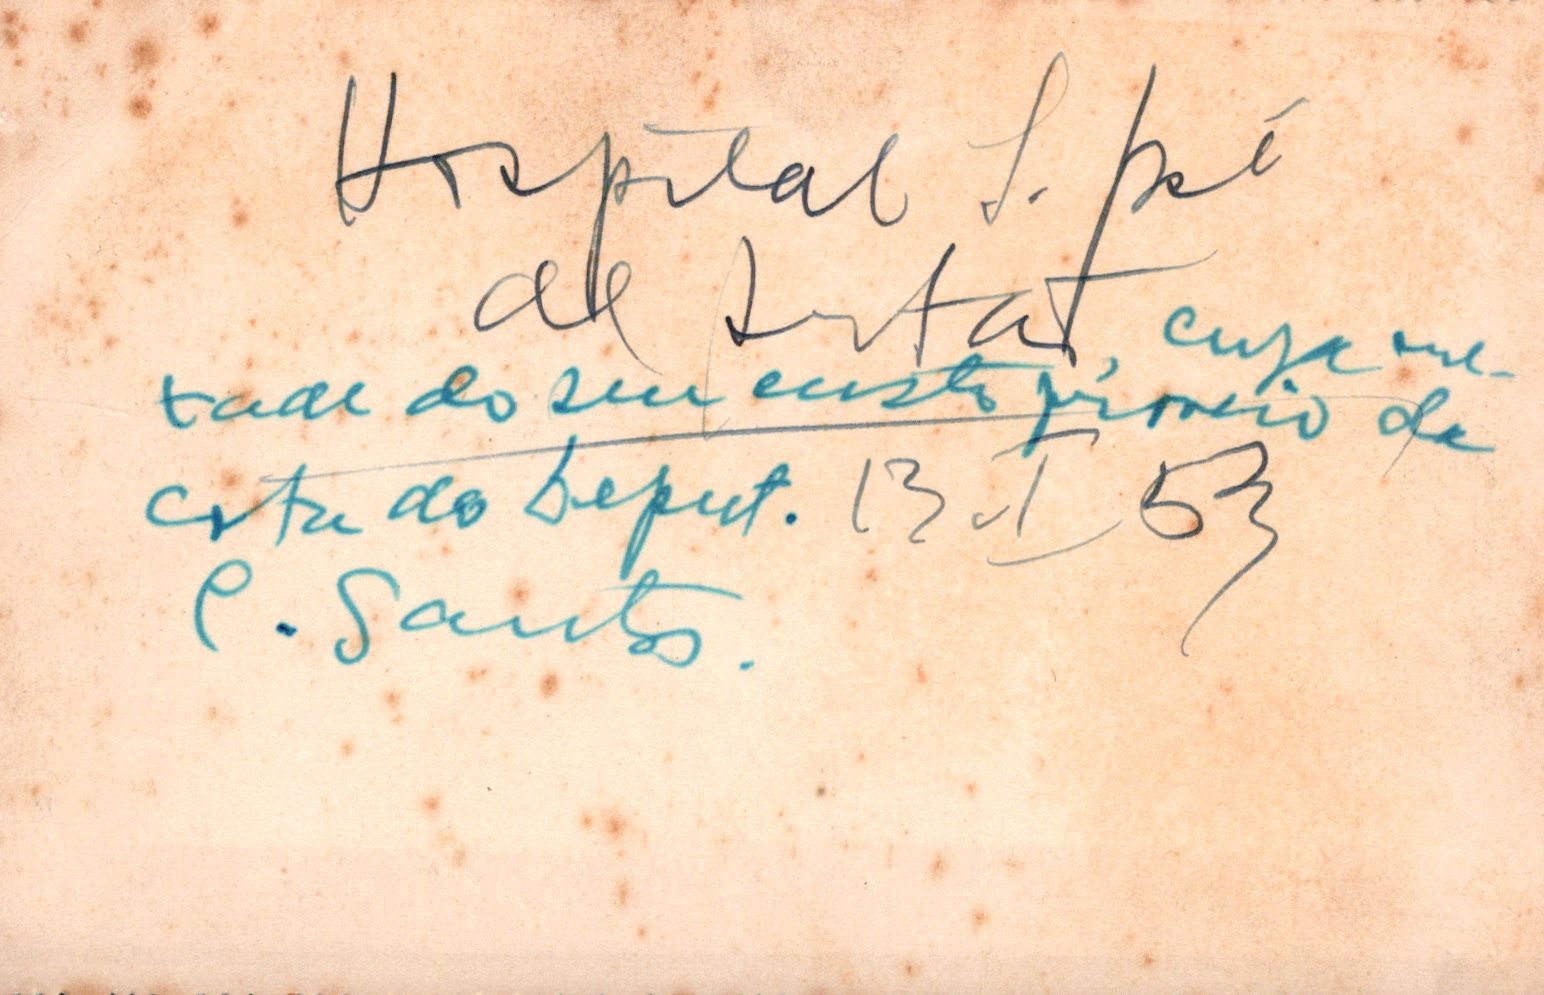 Hospital S. José
de
, cuja me-
tade do seu custo proveio da
cota do Deput. 13 VI 53
C. Santos.